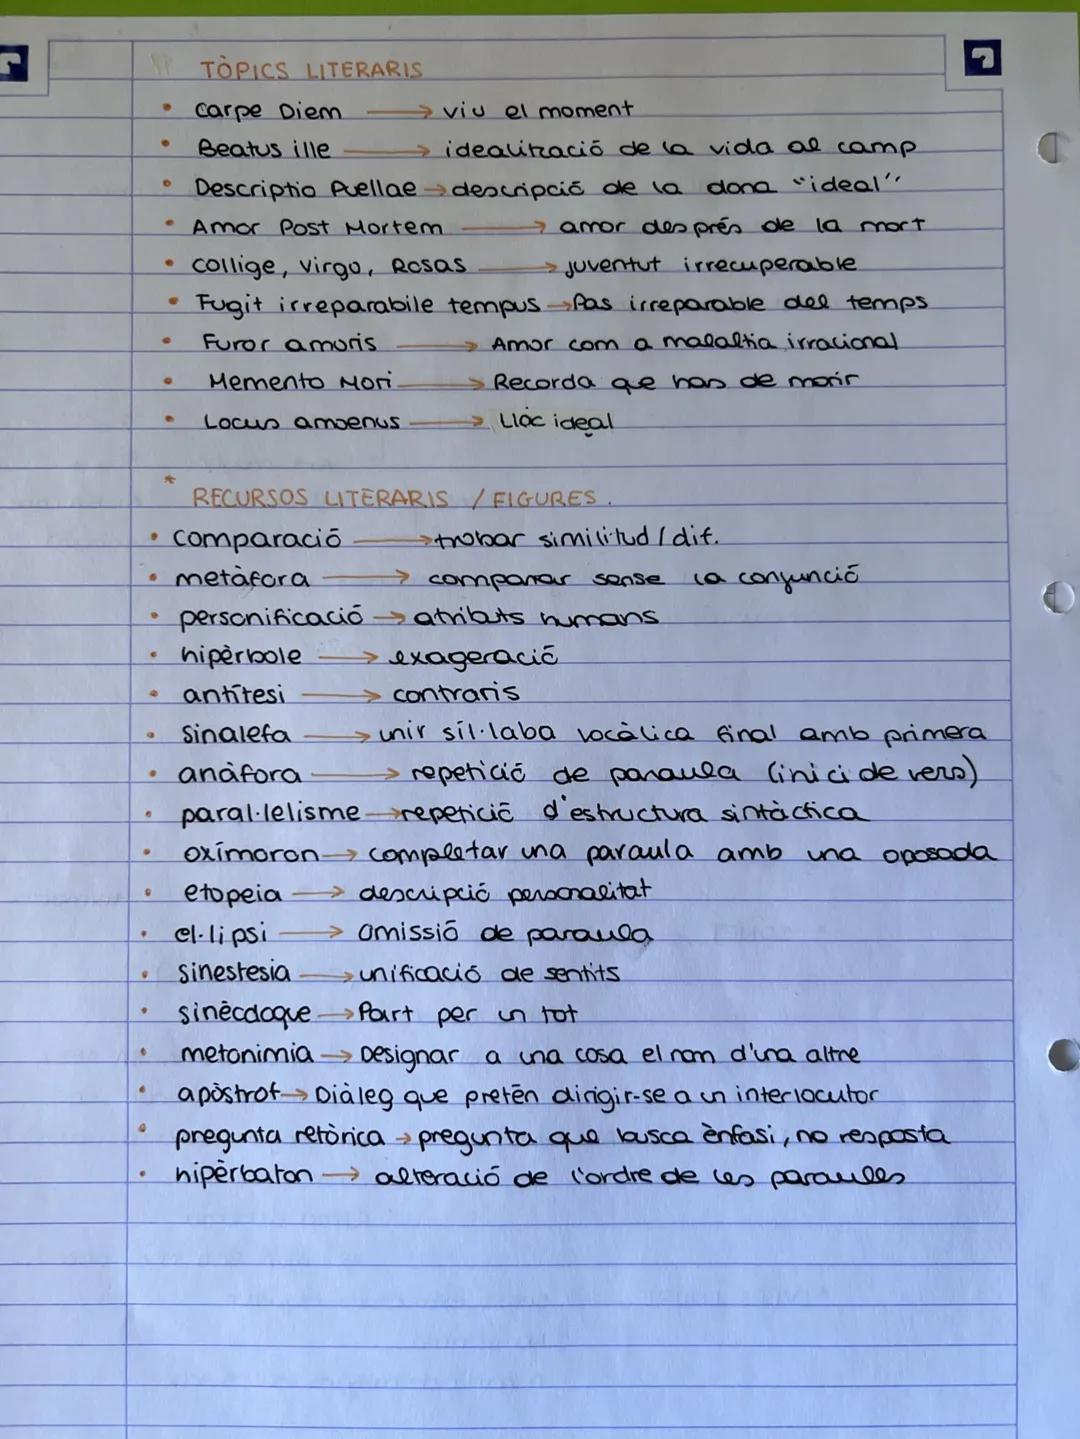 TÒPICS LITERARIS
• Carpe Diem → viu el moment
• Beatus ille → idealització de la vida al camp
• Descriptio Puellae → descripció de la dona "ideal"
• Amor Post Mortem → amor després de la mort
• Collige, virgo, Rosas → juventut irrecuperable
• Fugit irreparabile tempus → Pas irreparable del temps
• Furor amoris → Amor com a malaltia irracional
• Memento Mori → Recorda que has de morir
• Locus amoenus → Lloc ideal
* RECURSOS LITERARIS / FIGURES.
• comparació → trobar similitud / dif.
• metàfora → comparar sense la conjunció
• personificació → atributs humans
• hipèrbole → exageració
• antítesi → contraris
• sinalefa → unir síl·laba vocàlica final amb primera
• anàfora → repetició de paraula (inici de vers)
• paral·lelisme → repetició d'estructura sintàctica
• oxímoron → completar una paraula amb una oposada
• etopeia → descripció personalitat
• el·lipsi → omissió de paraula
• sinestesia → unificació de sentits
• sinècdoque → Part per un tot
• metonimia → Designar a una cosa el nom d'una altre
• apòstrof → Diàleg que pretén dirigir-se a un interlocutor
• pregunta retòrica → pregunta que busca ènfasi, no resposta
• hipèrbaton → alteració de l'ordre de les paraules